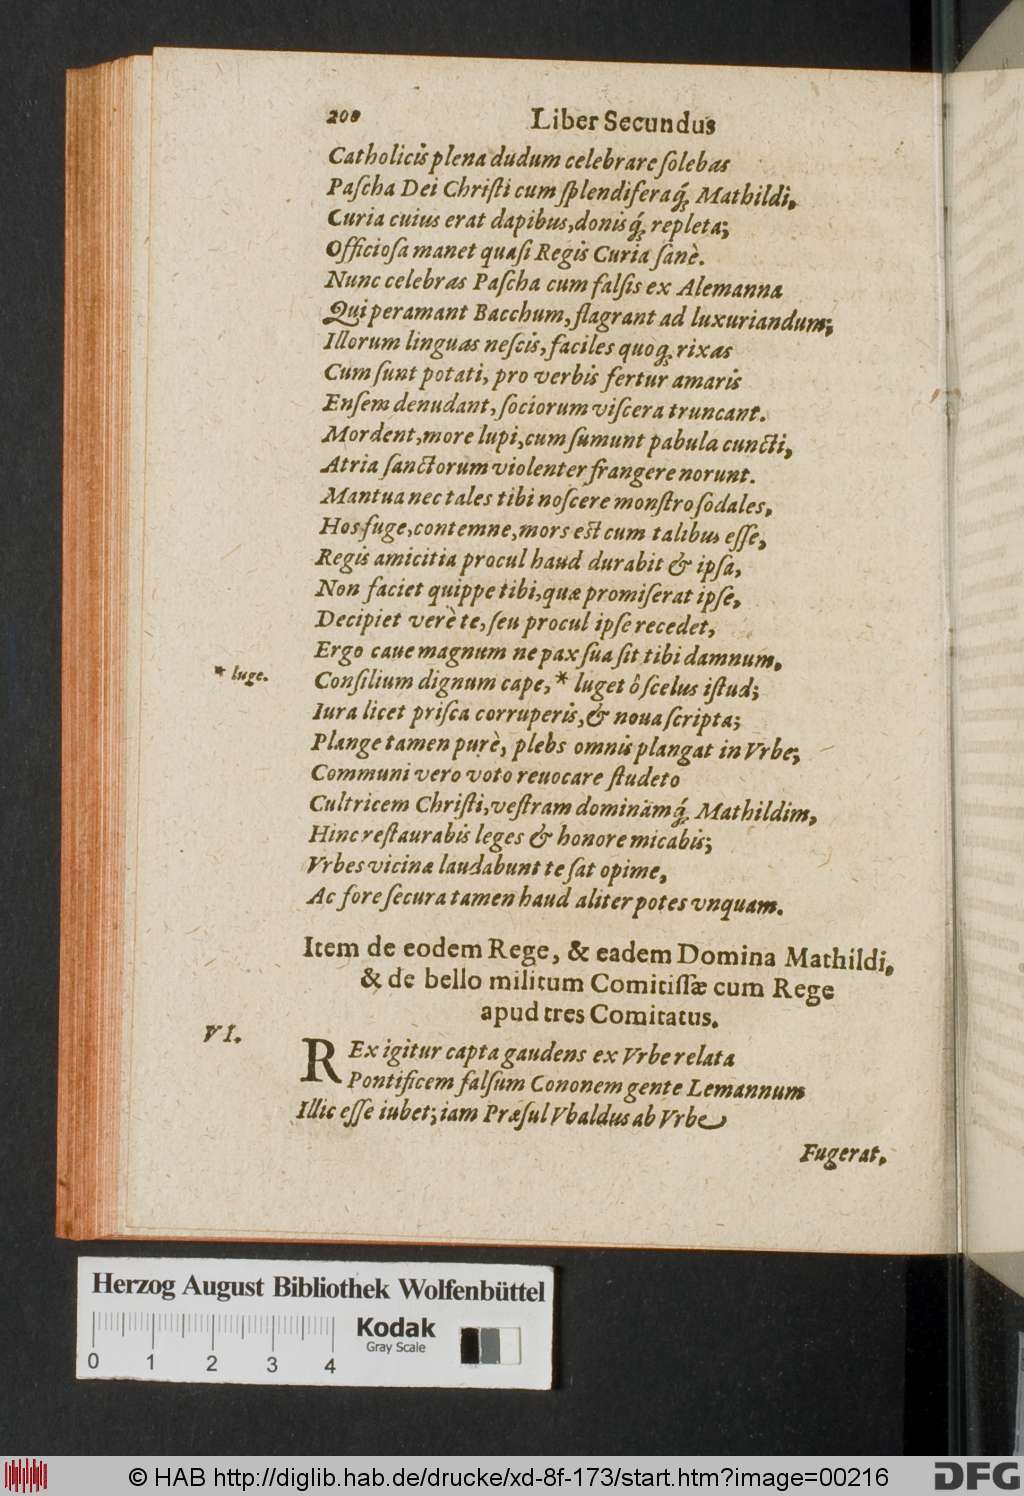 200 Liber Secundus
Catholicis plena dudum celebrare ſolebas
Paſcha Dei Chriſti cum ſplendiferaq́; Mathildi,
Curia cuius erat dapibus, donisq́; repleta;
Officioſa manet quaſi Regis Curia ſanè.
Nunc celebras Paſcha cum falſis ex Alemanna
Qui peramant Bacchum, flagrant ad luxuriandum;
Illorum linguas neſcis, faciles quoq; rixas
Cum ſunt potati, pro verbis fertur amaris
Enſem denudant, ſociorum viſcera truncant.
Mordent, more lupi, cum ſumunt pabula cuncti,
Atria ſanctorum violenter frangere norunt.
Mantua nec tales tibi noſcere monſtro ſodales,
Hos fuge, contemne, mors est cum talibus eſſe,
Regis amicitia procul haud durabit & ipſa,
Non faciet quippe tibi, quæ promiſerat ipſe,
Decipiet verè te, ſeu procul ipſe recedet,
Ergo caue magnum ne pax ſua ſit tibi damnum,
* luge.
Conſilium dignum cape, * luget ô ſcelus iſtud;
Iura licet priſca corruperis, & noua ſcripta;
Plange tamen purè, plebs omnis plangat in Vrbe;
Communi vero voto reuocare ſtudeto
Cultricem Chriſti, veſtram dominamq́; Mathildim,
Hinc reſtaurabis leges & honore micabis;
Vrbes vicinæ laudabunt te ſat opime,
Ac fore ſecura tamen haud aliter potes vnquam.
Item de eodem Rege, & eadem Domina Mathildi,
& de bello militum Comitiſſæ cum Rege
apud tres Comitatus.
VI.
REx igitur capta gaudens ex Vrbe relata
Pontificem falſum Cononem gente Lemannum
Illic eſſe iubet; iam Præſul Vbaldus ab Vrbe
Fugerat,
Herzog August Bibliothek Wolfenbüttel
Kodak
Gray Scale
0 1 2 3 4
© HAB http://diglib.hab.de/drucke/xd-8f-173/start.htm?image=00216
DFG